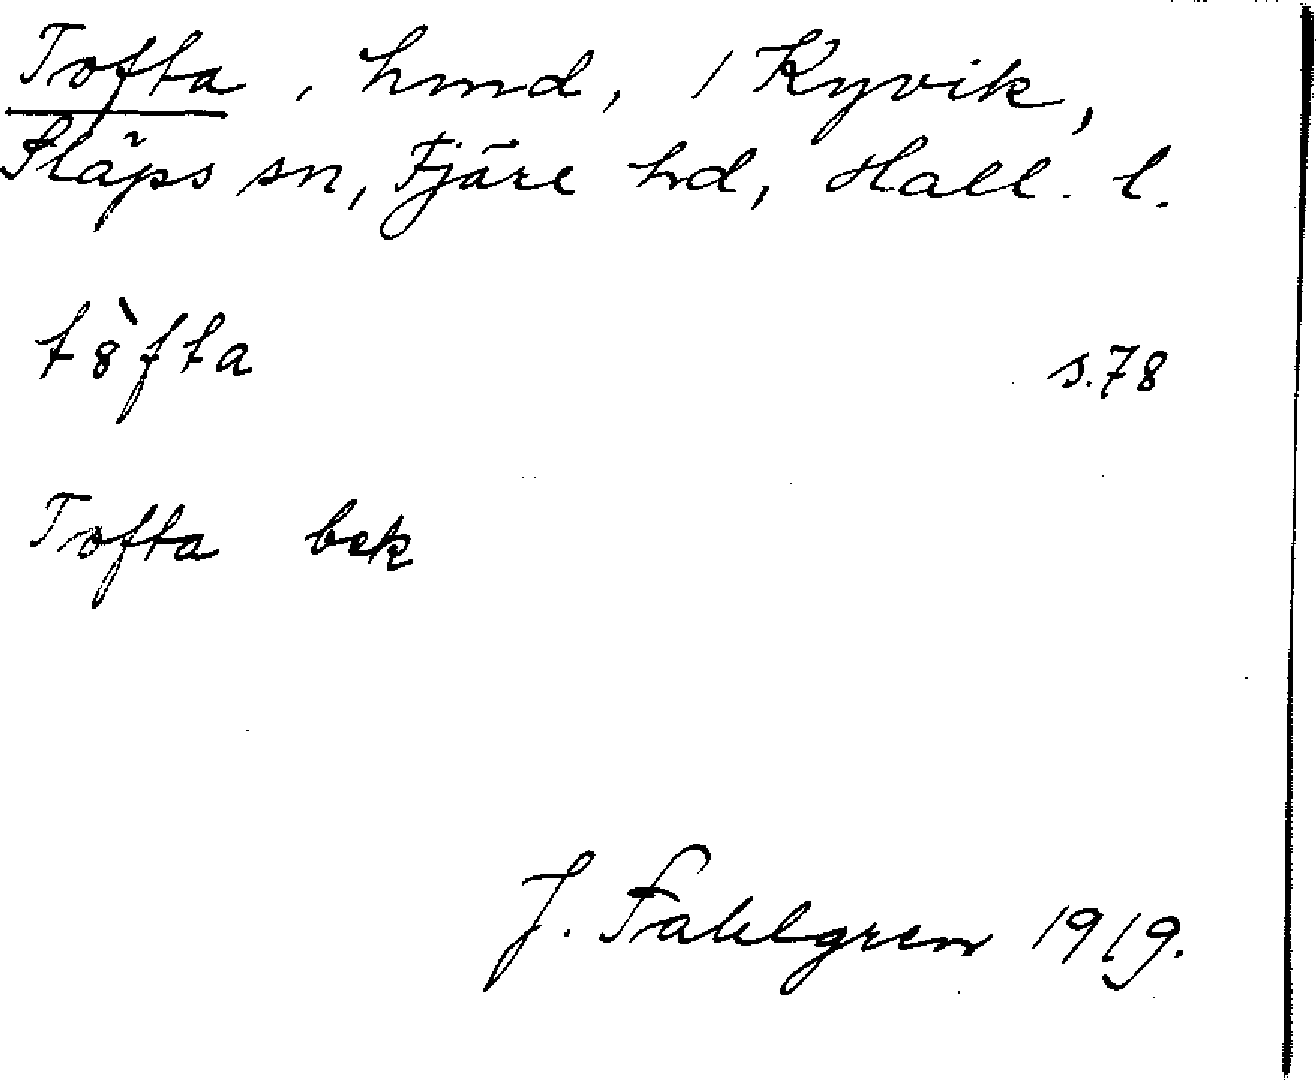 Tofta, hmd, 1 Kyvik,
Släps sn, Fjäre hd, Hall. l.
t8̀fta s.78
Tofta bek
J. Fahlgren 1919.